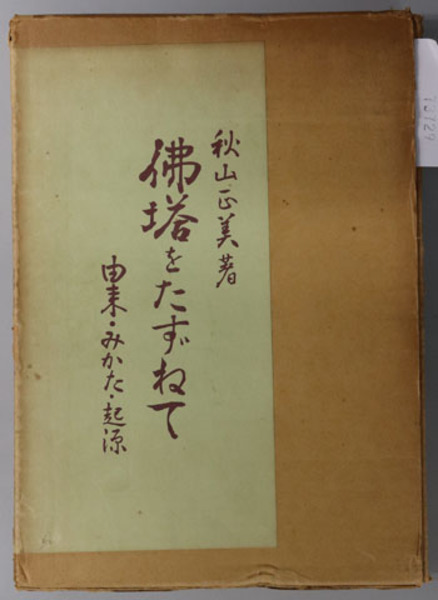 秋山正美著
佛塔をたずねて
由来・みかた・起源
73729